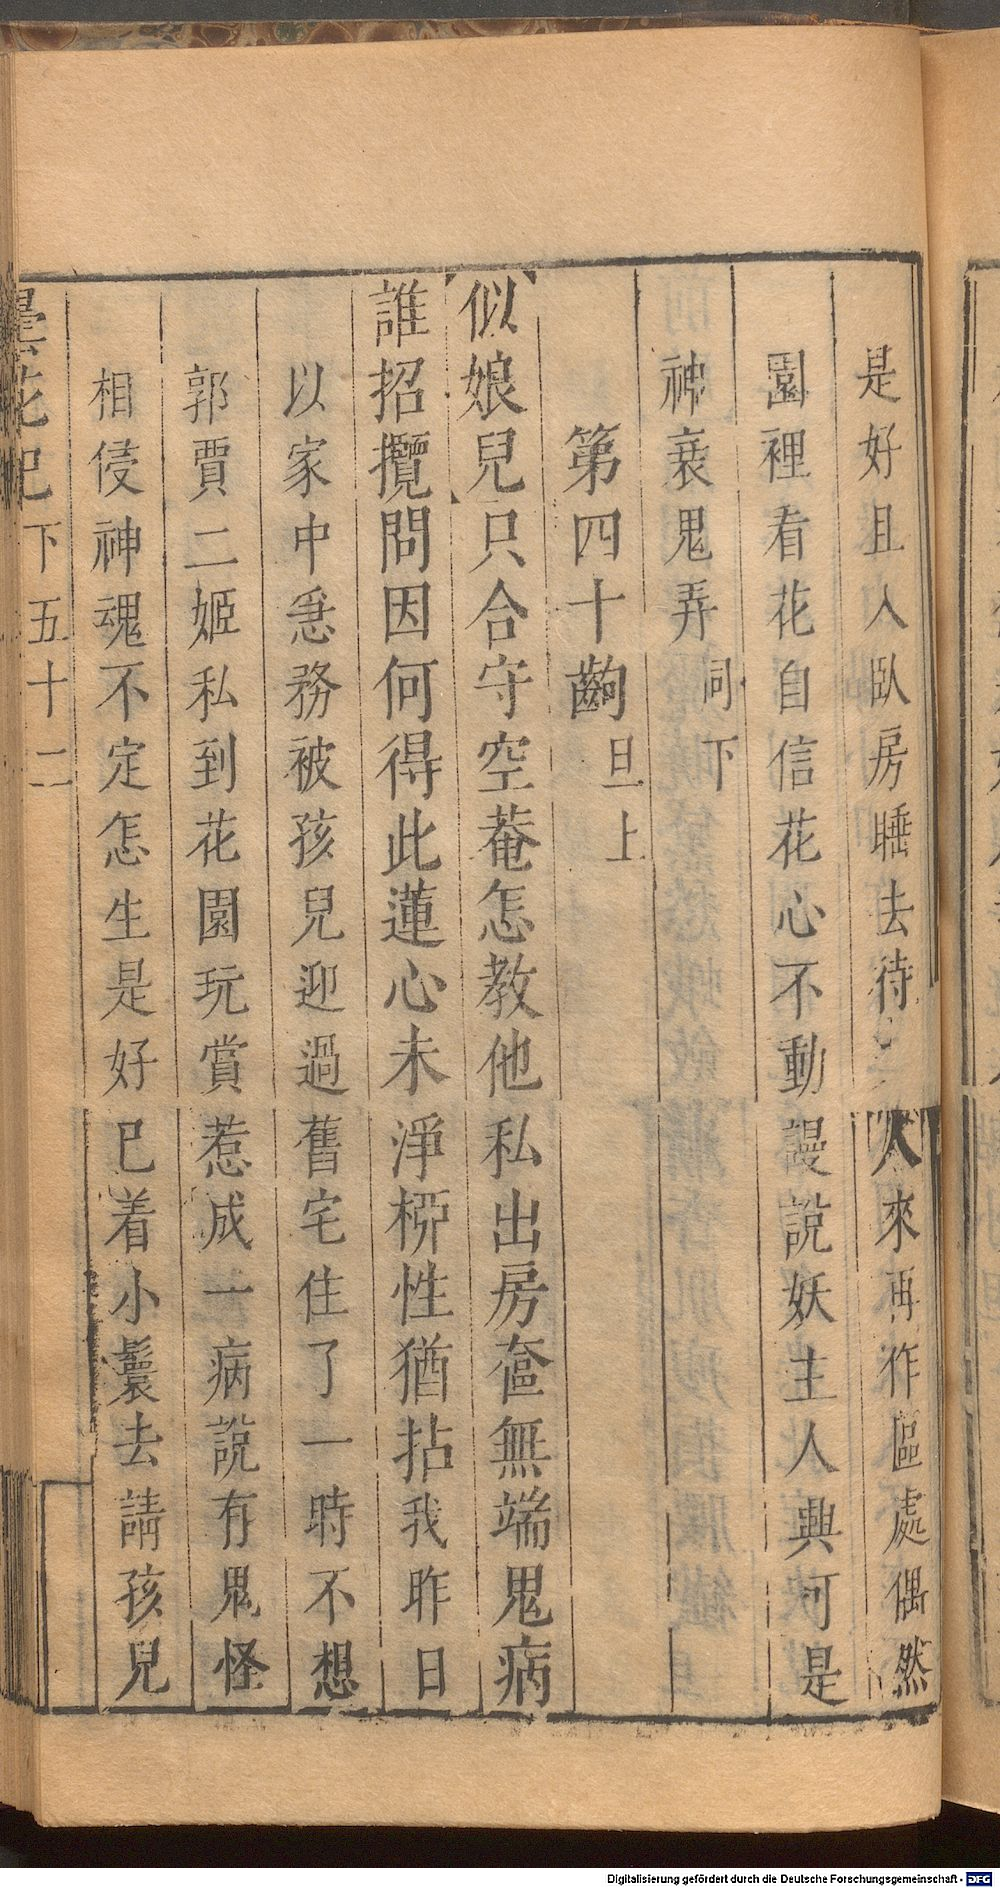 是好且入臥房睡去待人來再作區處偶然
園裡看花自信花心不動謾說妖主人與可是
神衰鬼弄同下
第四十齣旦上
似娘兒只合守空菴怎教他私出房奩無端鬼病
誰招攬問因何得此蓮心未淨栁性猶拈我昨日
以家中急務被孩兒迎過舊宅住了一時不想
郭賈二姬私到花園玩賞惹成一病說有鬼怪
相侵神魂不定怎生是好已着小鬟去請孩兒
曇花記下五十二
Digitalisierung gefördert durch die Deutsche Forschungsgemeinschaft - DFG